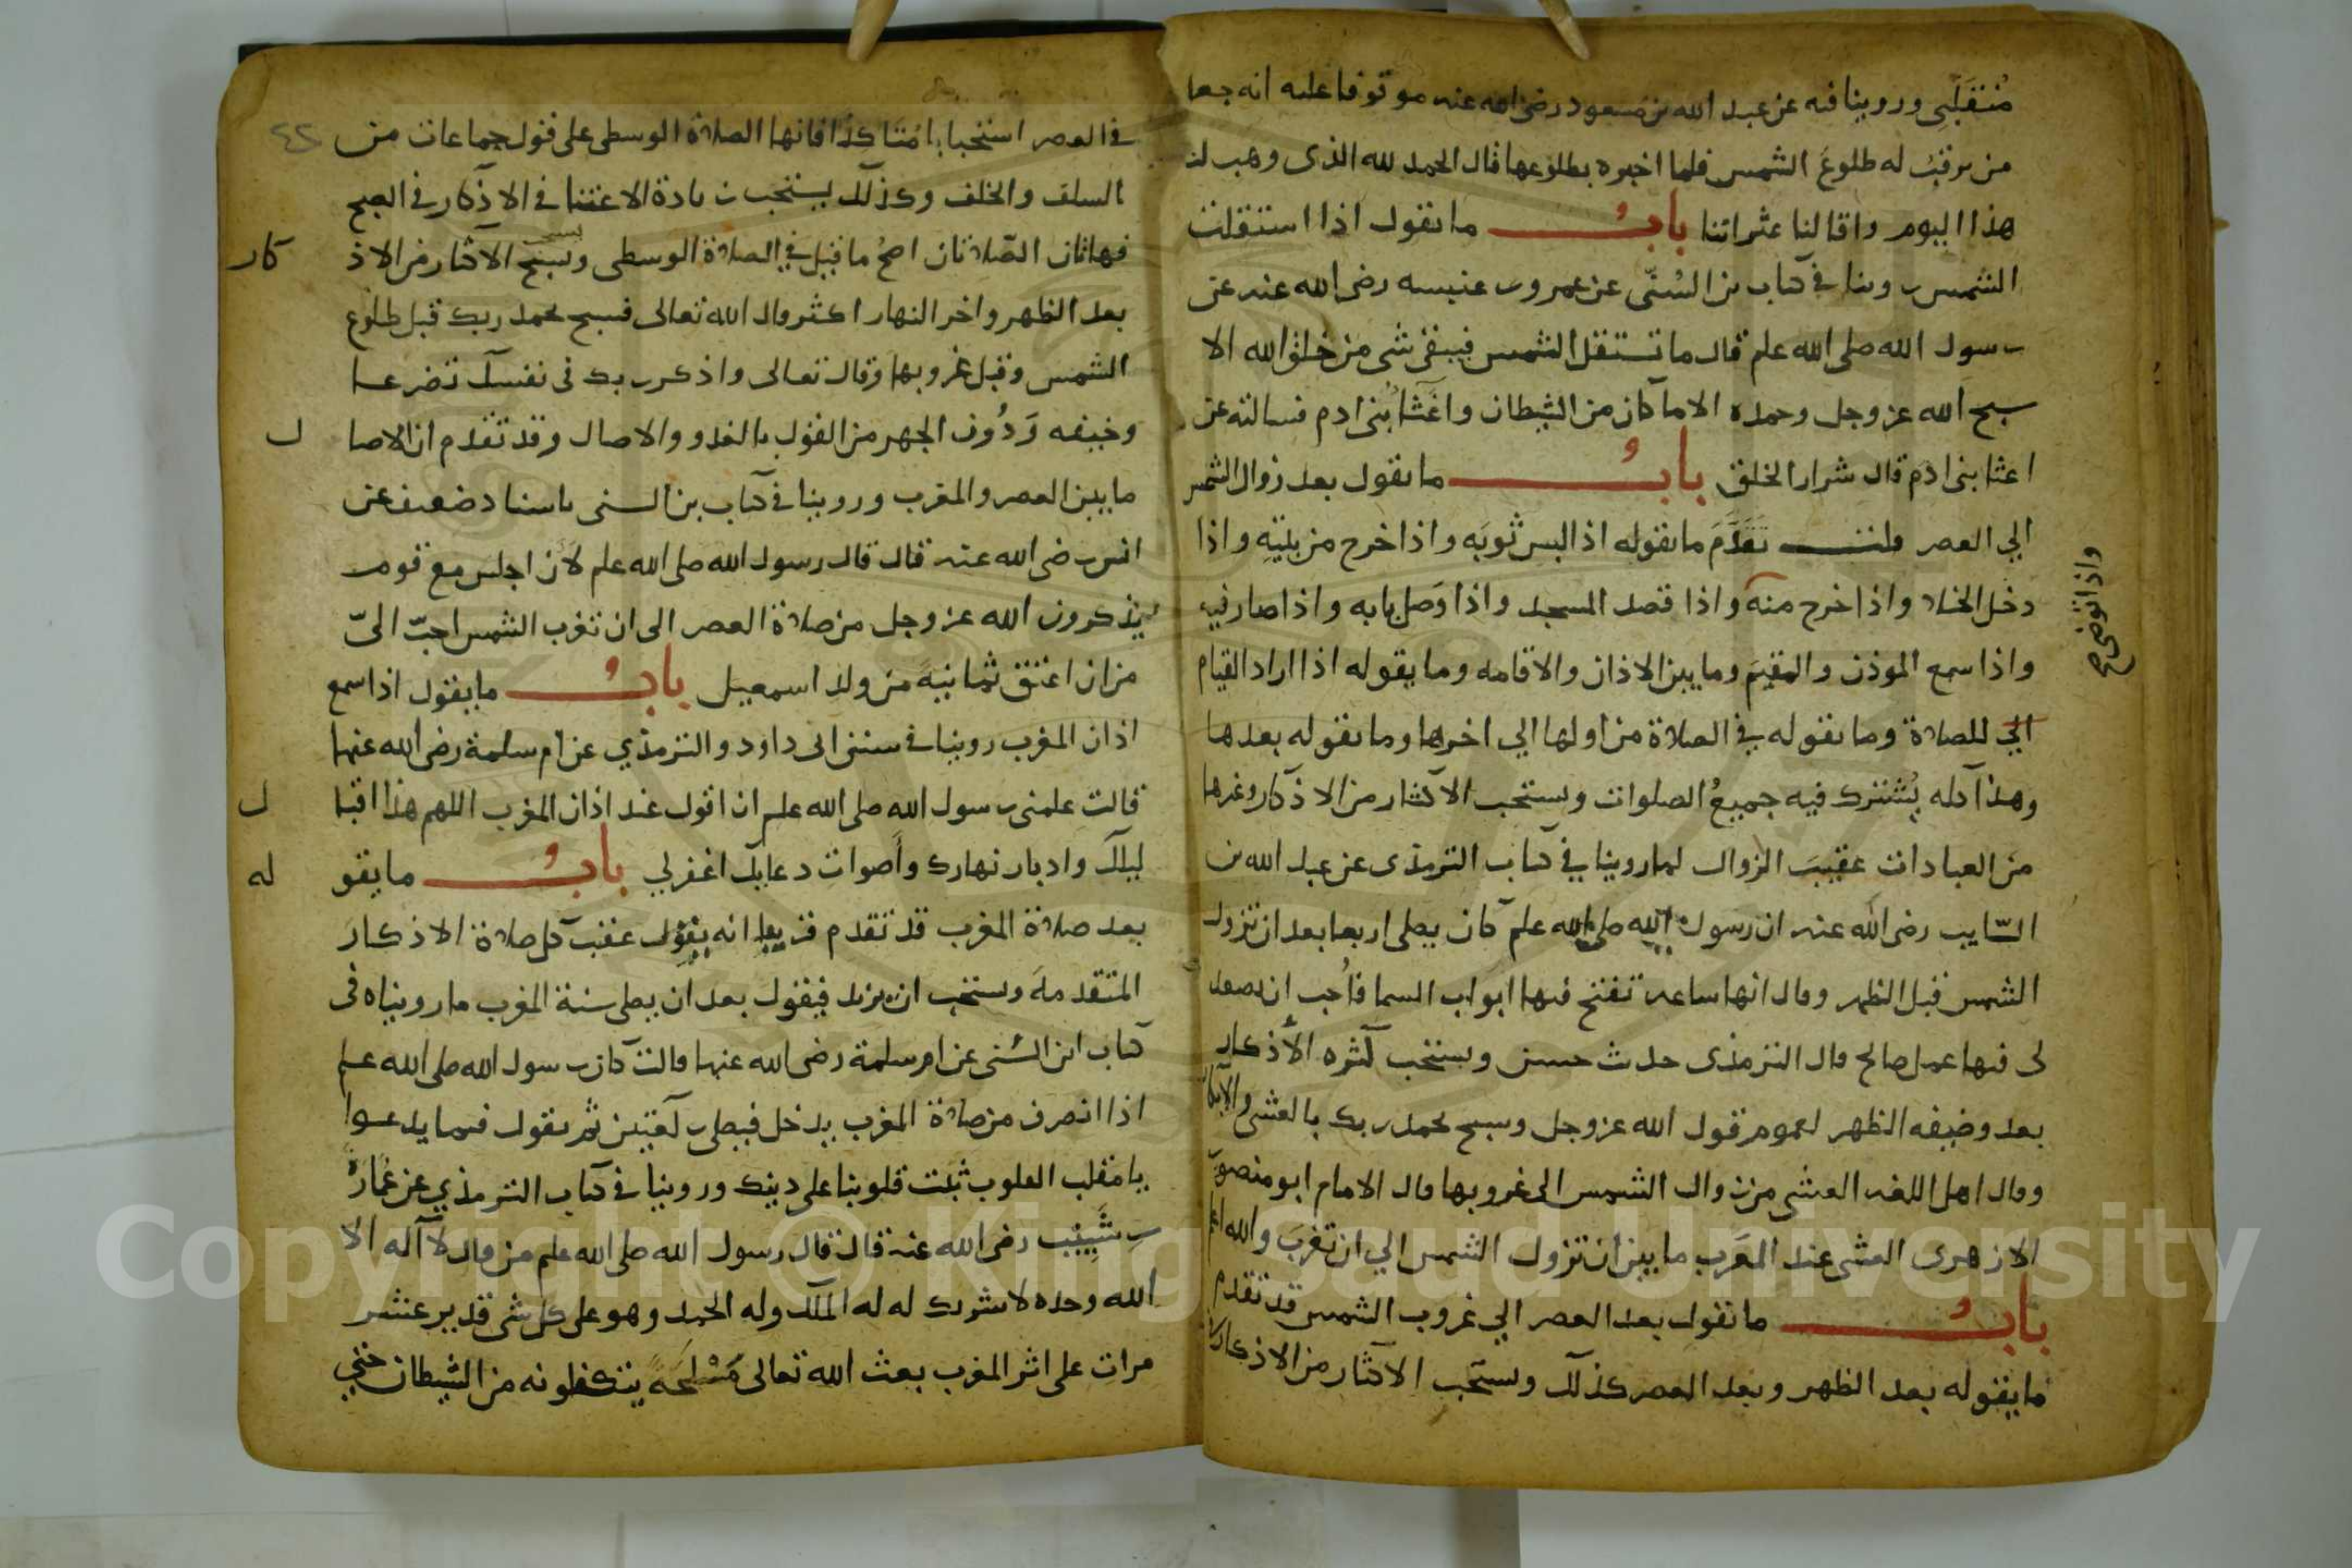 متقبلي وروينا فيه عن عبد الله بن مسعود رضي الله عنه موقوفا عليه انه جعل
من يرقب له طلوع الشمس فلما اخبره بطلوعها قال الحمد لله الذي وهب لنا
هذا اليوم واقالنا عثراتنا باب ما يقول اذا استقلت
الشمس روينا في كتاب بن السني عن عمرو بن عنبسه رضي الله عنه عن
رسول الله صلى الله علم قال ما تستقل الشمس فيبقى شي من خلق الله الا
سبح الله عز وجل وحمده الا ما كان من الشيطان واعثا بني ادم فسالته عن
اعثا بني ادم قال شرار الخلق باب ما يقول بعد زوال الشمس
الي العصر قلت تقدم ما يقوله اذا لبس ثوبه واذا خرج من بيته واذا
دخل الخلا واذا خرج منه واذا قصد المسجد واذا وصل بابه واذا صار فيه
واذا توضي صح
واذا سمع الموذن والمقيم وما بين الاذان والاقامه وما يقوله اذا اراد القيام
الي للصلاة وما يقوله في الصلاة من اولها الي اخرها وما يقوله بعدها
وهذا كله يشترك فيه جميع الصلوات ويستحب الاكثار من الاذكار وغيرها
من العبادات عقيب الزوال لما روينا في كتاب الترمذي عن عبد الله بن
السايب رضي الله عنه ان رسول الله صلى الله علم كان يصلي اربعا بعد ان تزول
الشمس قبل الظهر وقال انها ساعه تفتح فيها ابواب السما فاحب ان يصعد
لي فيها عمل صالح قال الترمذي حديث حسن ويستحب كثره الاذكار
بعد وضيفه الظهر لعموم قول الله عز وجل وسبح بحمد ربك بالعشي والابكار
وقال اهل اللغه العشي من زوال الشمس الى غروبها قال الامام ابو منصور
الازهري العشي عند العرب ما بين ان تزول الشمس الي ان تغرب والله اعلم
باب ما يقول بعد العصر الي غروب الشمس قد تقدم
ما يقوله بعد الظهر وبعد العصر كذلك ويستحب الاكثار من الاذكار
٤٢
في العصر استحبابا متاكدا فانها الصلاة الوسطى على قول جماعات من
السلف والخلف وكذلك يستحب زيادة الاعتنا في الاذكار في الصبح
فهاتان الصلاتان اصح ما قيل في الصلاة الوسطى ويستحب الاكثار من الاذكار
بعد الظهر واخر النهار اكثر قال الله تعالى فسبح بحمد ربك قبل طلوع
الشمس وقبل غروبها وقال تعالى واذكر ربك في نفسك تضرعا
وخيفه ودون الجهر من القول بالغدو والاصال وقد تقدم ان الاصال
ما بين العصر والمغرب وروينا في كتاب بن السني باسناد ضعيف عن
انس رضي الله عنه قال قال رسول الله صلى الله علم لان اجلس مع قوم
يذكرون الله عز وجل من صلاة العصر الى ان تغرب الشمس احب الي
من ان اعتق ثمانية من ولد اسمعيل باب ما يقول اذا سمع
اذان المغرب روينا في سنن ابي داود والترمذي عن ام سلمة رضي الله عنها
قالت علمني رسول الله صلى الله علم ان اقول عند اذان المغرب اللهم هذا اقبال
ليلك وادبار نهارك واصوات دعايك اغفر لي باب ما يقوله
بعد صلاة المغرب قد تقدم قريبا انه يقول عقب كل صلاة الاذكار
المتقدمة ويستحب ان يزيد فيقول بعد ان يصلي سنة المغرب ما رويناه في
كتاب ابن السني عن ام سلمة رضي الله عنها قالت كان رسول الله صلى الله علم
اذا انصرف من صلاة المغرب يدخل فيصلي ركعتين ثم يقول فيما يدعوا
يا مقلب القلوب ثبت قلوبنا على دينك وروينا في كتاب الترمذي عن عمارة
بن شبيب رضي الله عنه قال قال رسول الله صلى الله علم من قال لا اله الا
الله وحده لا شريك له له الملك وله الحمد وهو على كل شي قدير عشر
مرات على اثر المغرب بعث الله تعالى مسلحة يتكفلونه من الشيطان حتي
Copyright © King Saud University